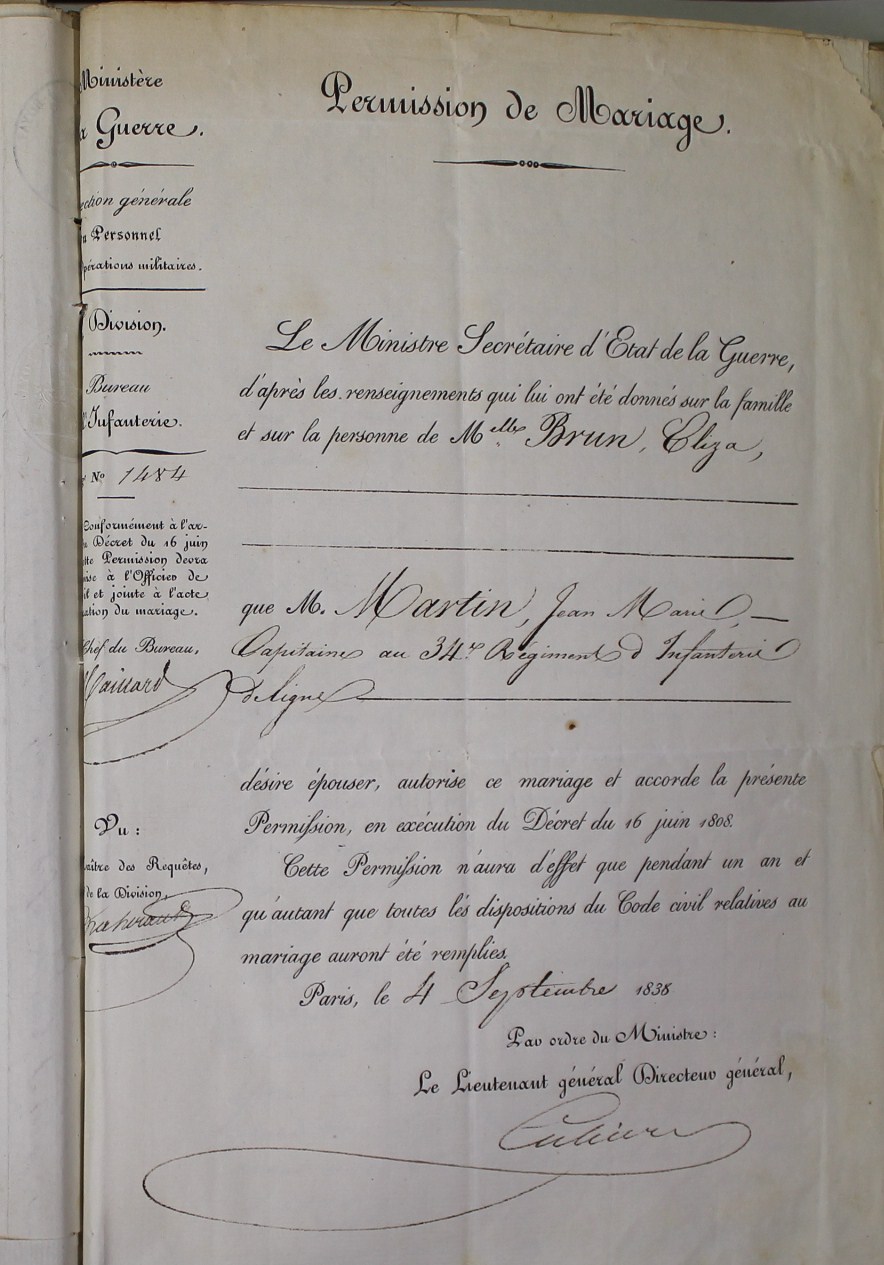 Ministère
Guerre.
ction générale
Personnel
pérations militaires.
Division.
Bureau
l'Infanterie.
No 1484
Conformément à l'ar-
Décret du 16 juin
tte Permission devra
ise à l'Officier de
il et jointe à l'acte
ation du mariage.
Chef du Bureau,
Vu :
aître des Requêtes,
de la Division,
Permission de Mariage.
Le Ministre Secrétaire d'Etat de la Guerre,
d'après les renseignements qui lui ont été donnés sur la famille
et sur la personne de Melle Brun, Eliza,
que M. Martin, Jean Marie,
Capitaine au 34e Régiment d'Infanterie
de ligne
désire épouser, autorise ce mariage et accorde la présente
Permission, en exécution du Décret du 16 juin 1808.
Cette Permission n'aura d'effet que pendant un an et
qu'autant que toutes les dispositions du Code civil relatives au
mariage auront été remplies.
Paris, le 4 Septembre 1838
Par ordre du Ministre :
Le Lieutenant général Directeur général,